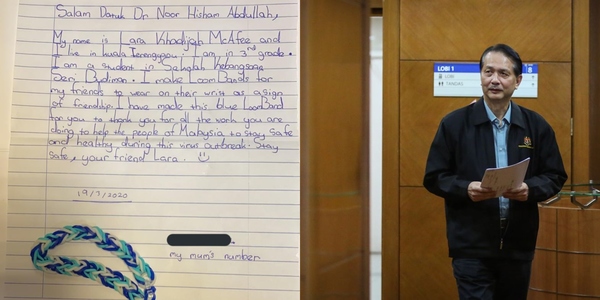 Salam Datuk Dr. Noor Hisham Abdullah,
My name is Lara Khadijah McAfee and
I live in Kuala Terengganu. I am in 3rd grade.
I am a student in Sekolah Kebangsaan
Seri Budiman. I make LoomBands for
my friends to wear on their wrist as a sign
of friendship. I have made this blue LoomBand
for you to thank you for all the work you are
doing to help the people of Malaysia to stay safe
and healthy during this virus outbreak. Stay
safe, your friend Lara.
19/7/2020
my mum's number
LOBI 1
LOBI
TANDAS